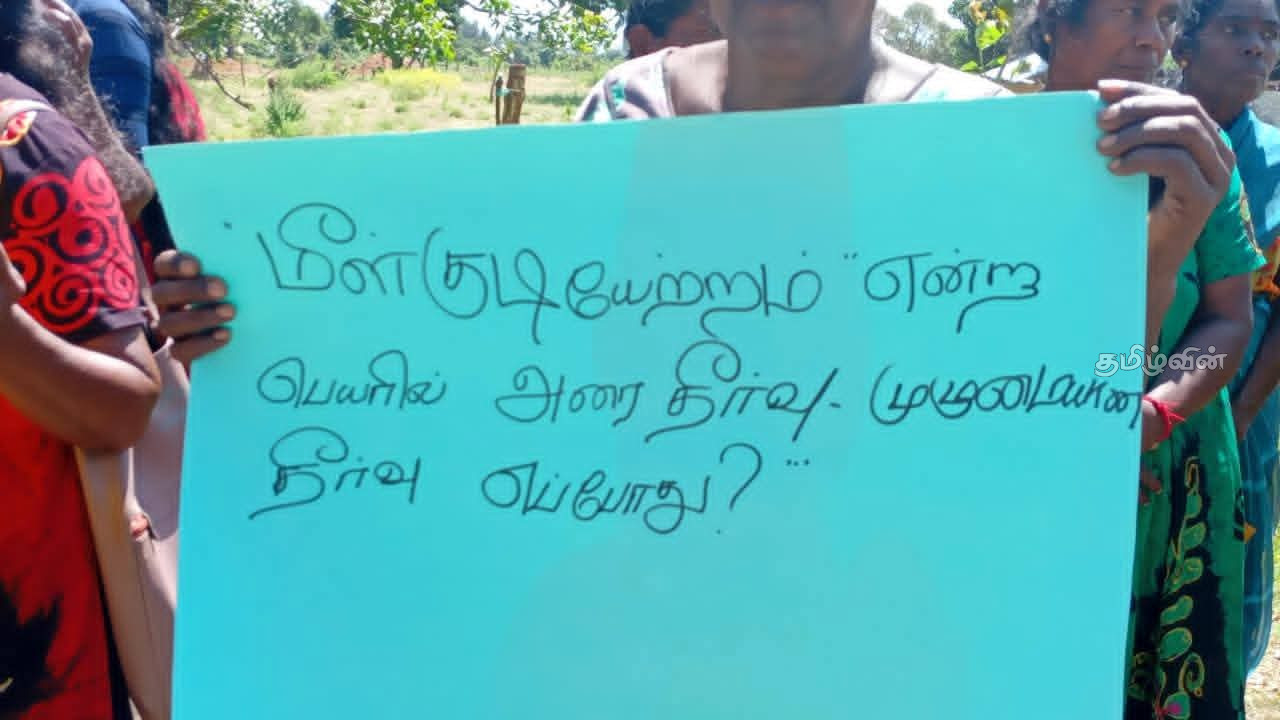 "மீள்குடியேற்றம்" என்ற
பெயரில் அரை தீர்வு - முழுமையான
தீர்வு எப்போது? "..
தமிழ்வின்